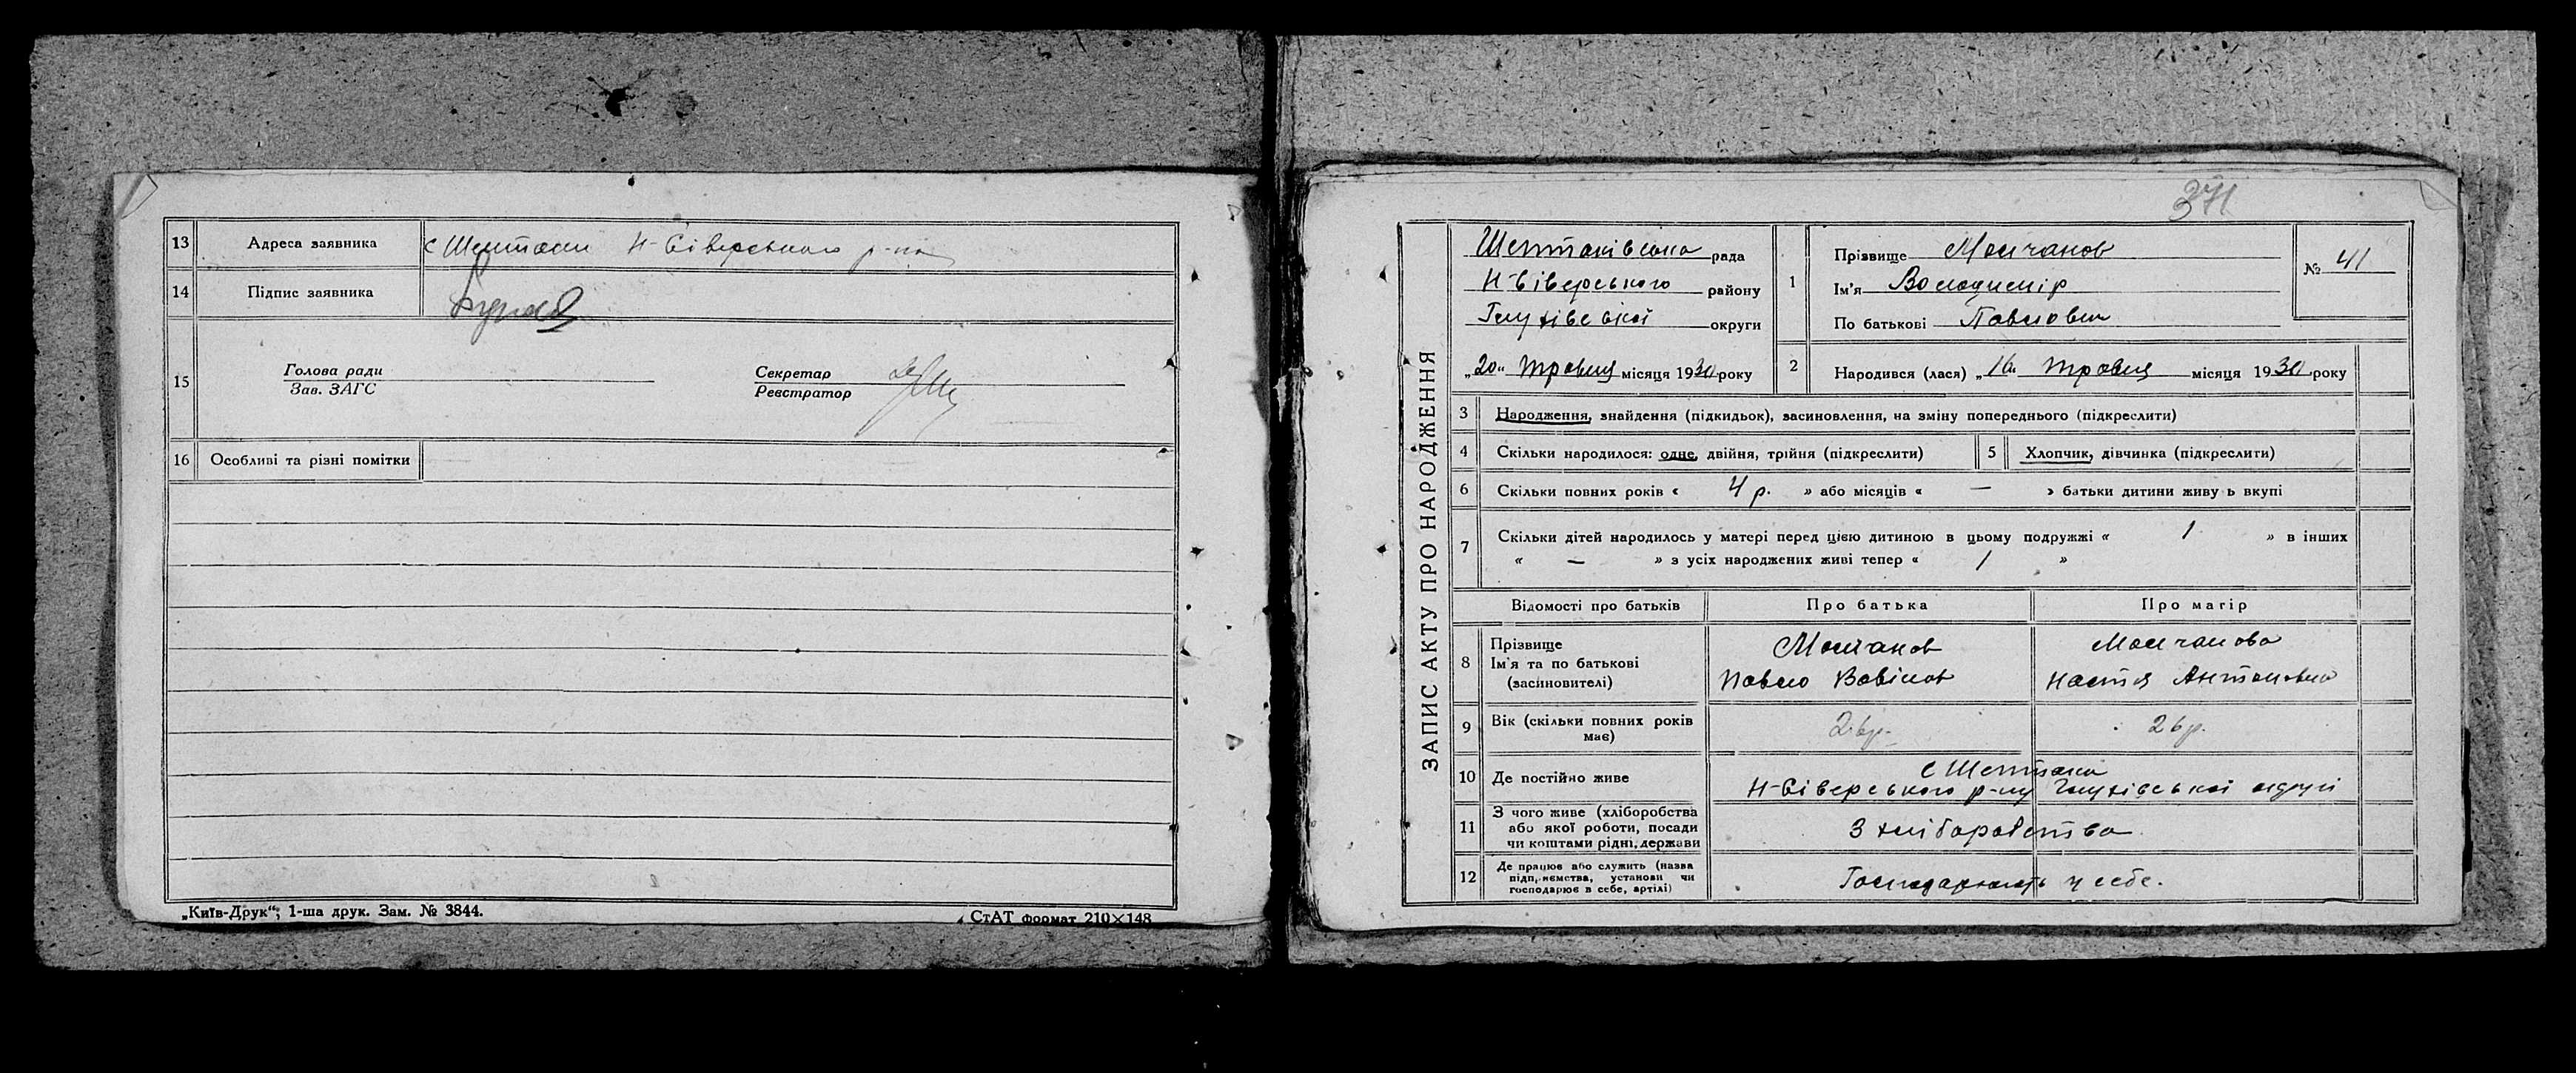 13 Адреса заявника с Шептаки Н-Сіверського р-ну
14 Підпис заявника
15 Голова ради
Зав. ЗАГС
Секретар
Реєстратор
16 Особливі та різні помітки
„Київ-Друк“; 1-ша друк. Зам. № 3844.
СтАТ формат 210×148
371
ЗАПИС АКТУ ПРО НАРОДЖЕННЯ
Шептаківська рада
Н-Сіверського району
Глухівської округи
„20“ травня місяця 1930 року
1 Прізвище Молчанов
Ім'я Володимір
По батькові Павлович
№ 41
2 Народився (лася) „16“ травня місяця 1930 року
3 Народження, знайдення (підкидьок), засиновлення, на зміну попереднього (підкреслити)
4 Скільки народилося: одне, двійня, трійня (підкреслити)
5 Хлопчик, дівчинка (підкреслити)
6 Скільки повних років « 4 р. » або місяців « — » батьки дитини живу ь вкупі
7 Скільки дітей народилось у матері перед цією дитиною в цьому подружжі « 1 » в інших
« — » з усіх народжених живі тепер « 1 »
Відомості про батьків Про батька Про матір
8 Прізвище
Ім'я та по батькові
(засиновителі)
Молчанов
Павло
Молчанова
Настя Антоновна
9 Вік (скільки повних років
має)
26р.
26р.
10 Де постійно живе
с Шептаки
Н-Сіверського р-ну Глухівської округи
11 З чого живе (хліборобства
або якої роботи, посади
чи коштами рідні, держави
З хліборобства
12 Де працює або служить (назва
підприємства, установи чи
господарює в себе, артілі)
Господарюють у себе.